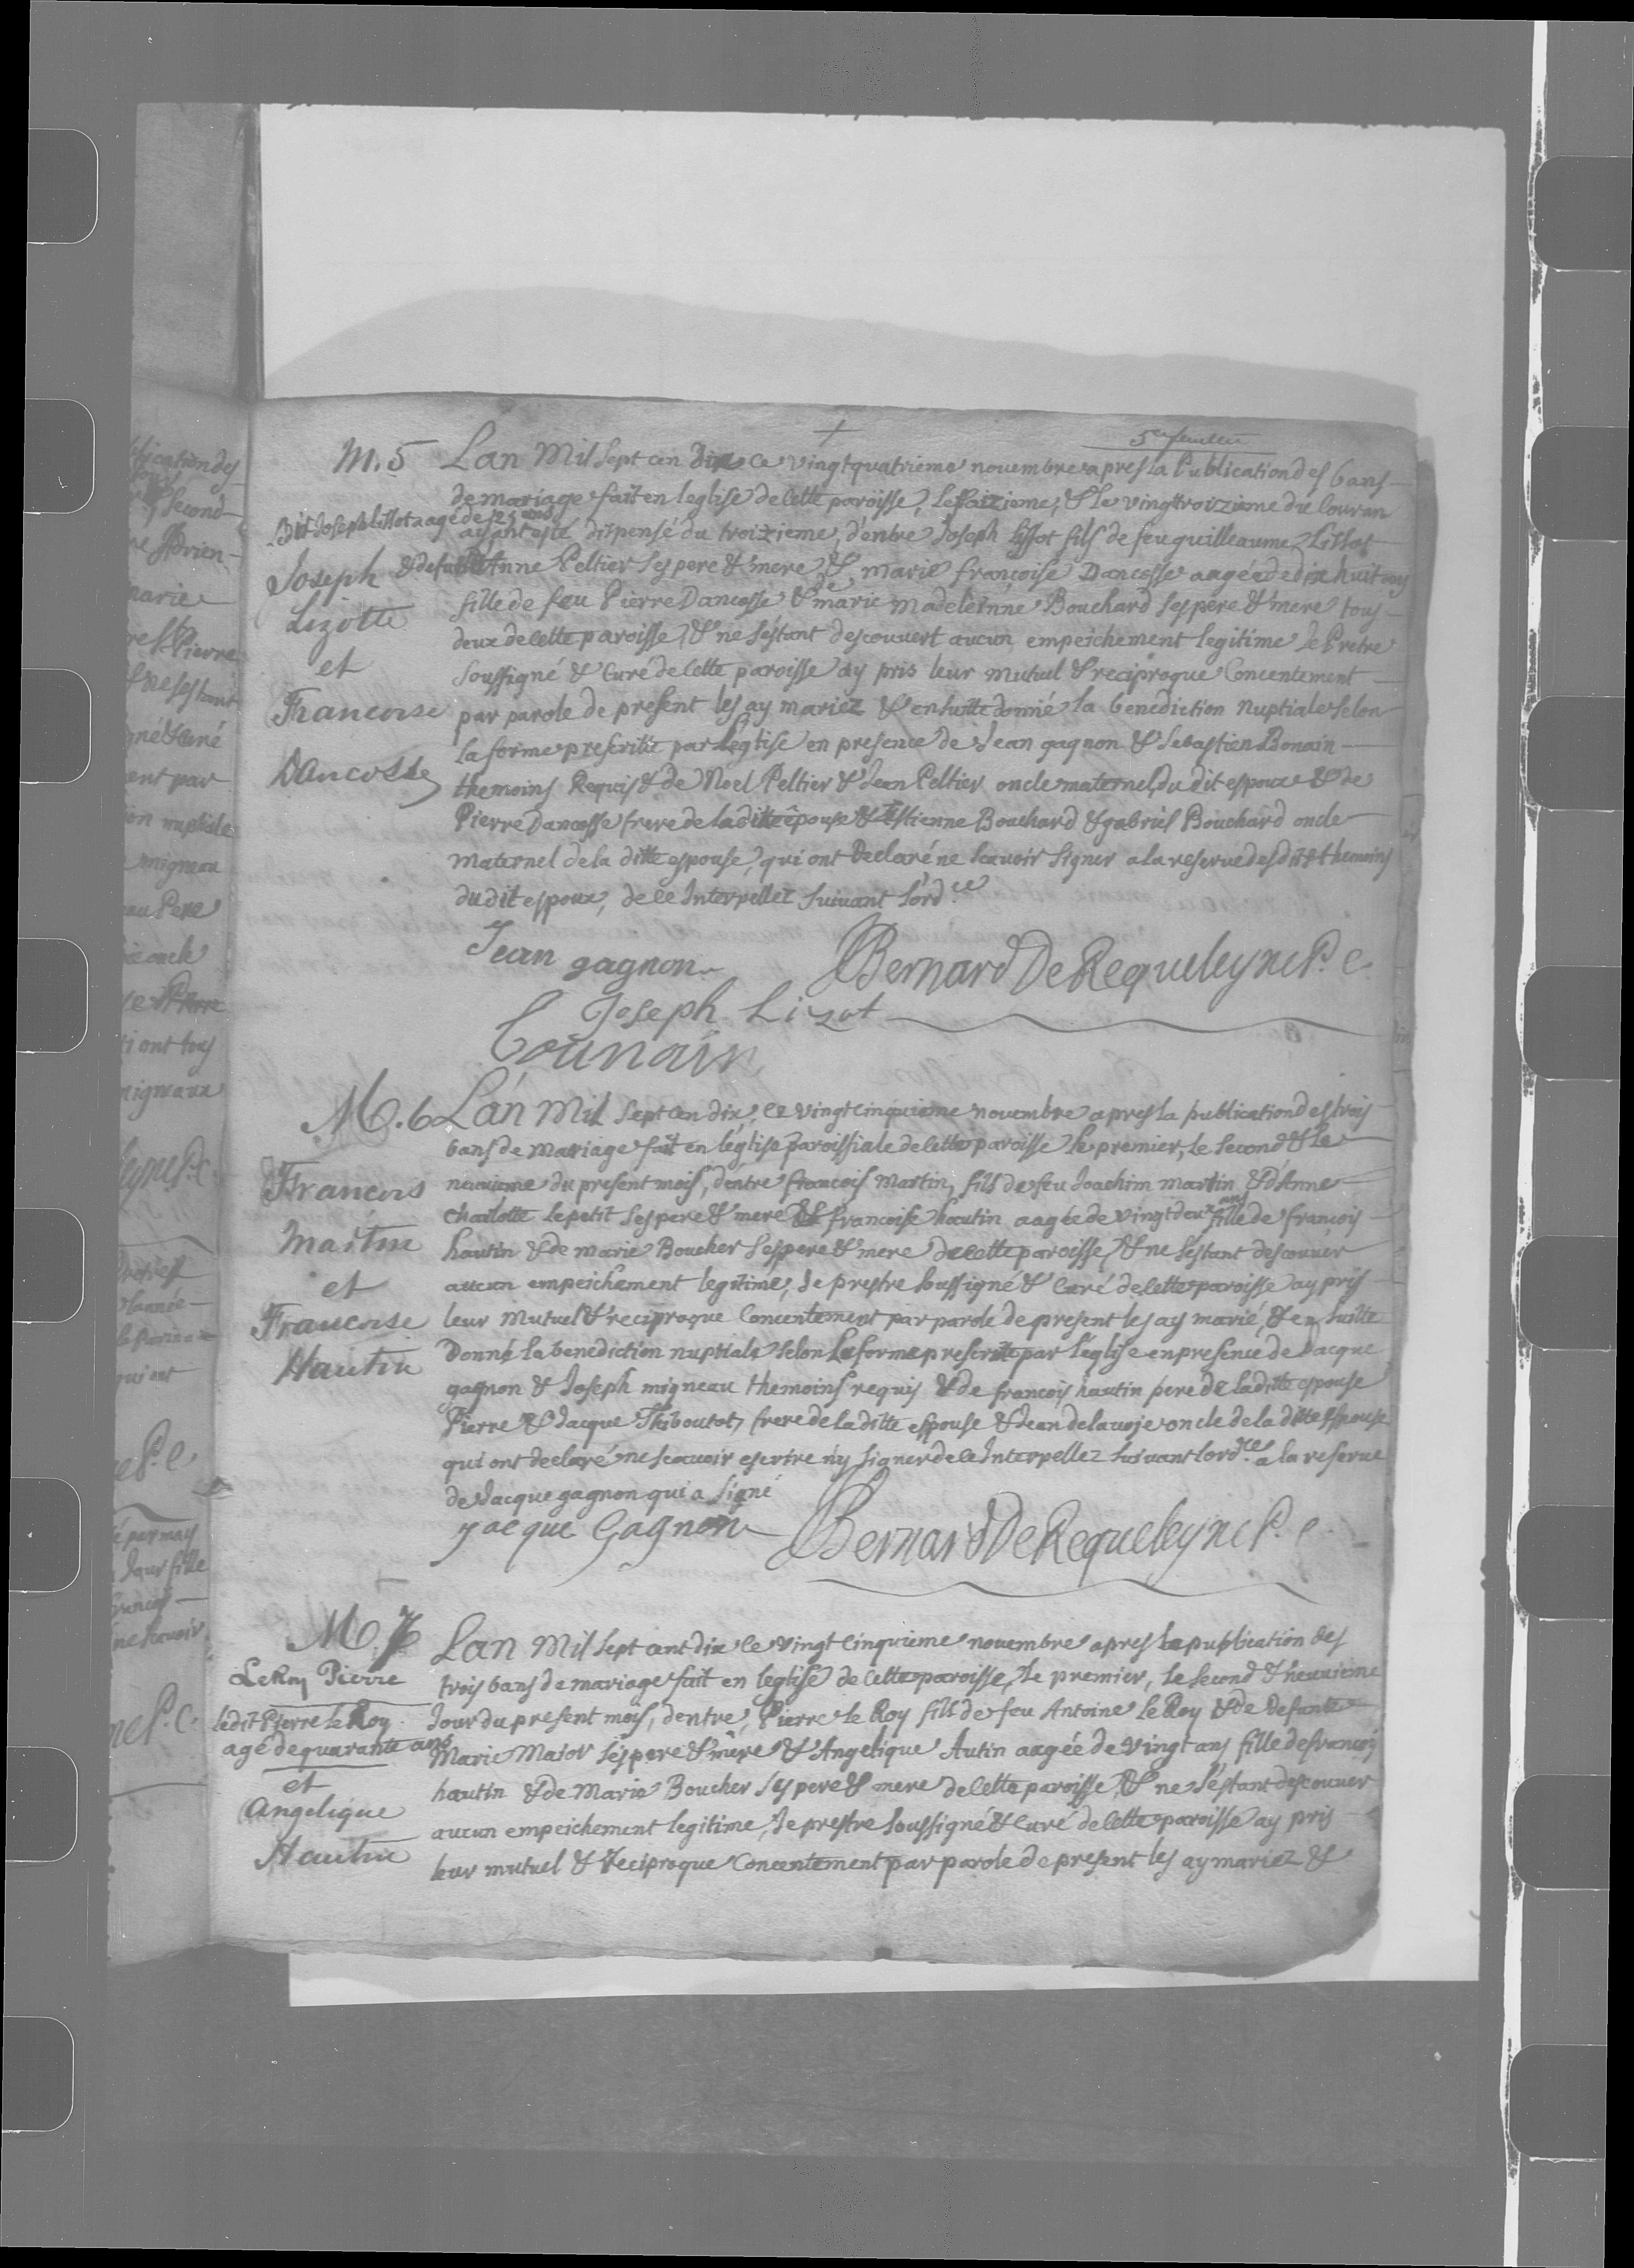 M. 5
Lan Mil sept cen Dix ce vingtquatrieme novembre apres la Publication des bans
de mariage fait en leglise de cette paroisse, le saizieme, & le vingttroizieme du Couran
Dit Joseph Lissot aagé de 25 ans
ayant esté dispensé du troizieme, d'entre Joseph Lissot fils de feu guilleaume Lissot
& defunte Anne Peltier ses pere & mere & marie françoise Dancosse aagée de dix huit ans
fille de feu Pierre Dancosse & marie Madeleinne Bouchard ses pere & mere tous
deux de cette paroisse, & ne s'estant descouvert aucun empeichement legitime Je Pretre
soussigné & Curé de Cette paroisse ay pris leur mutuel & reciproque Concentement
par parole de present les ay mariez & ensuitte donné la benediction Nuptiale selon
la forme prescritte par l'église en presence de Jean gagnon & Sebastien Bonain
themoins Requis & de Noel Peltier & Jean Peltier oncle maternel du dit espoux & de
Pierre Dancosse frere de la ditte épouse & Estienne Bouchard & gabriel Bouchard oncle
maternel de la ditte espouse, qui ont Declaré ne scavoir signer a la reserve desdits themoins
du dit espoux, de ce Interpellez suivant l'ord.ce
Joseph
Lizotte
et
Francoise
Dancosse
Jean gagnon
Bernard DeRequeleyne P. C.
Joseph Lizot
M. 6
L'an Mil sept cen dix, ce vingt cinquieme novembre apres la publication des trois
bans de Mariage fait en léglise paroissiale de cette paroisse le premier, le second & le
neuvieme du present mois, dentre francois Martin, fils de feu Joachim martin & d'Anne
Charlotte lepetit ses pere & mere & francoise hautin aagée de vingt deux ans fille de francois
hautin & de marie Boucher ses pere & mere de cette paroisse, & ne s'estant descouver
aucun empeichement legitime, Je prestre soussigné & Curé de cette paroisse ay pris
leur Mutuel & reciproque Concentement par parole de present les ay marié, & en suitte
Donné la benediction nuptiale selon la forme prescritte par l'église en presence de Jacque
gagnon & Joseph migneau themoins requis & de francois hautin pere de la ditte espouse
Pierre & Jacque Thiboutot, frere de la ditte espouse & Jean delavoje oncle de la ditte Espouse
qui ont declaré ne scavoir escrire n'y signer de ce Interpellez suivant lord.ce a la reserve
de Jacque gagnon qui a signé
Francois
Martin
et
Francoise
Hautin
yacque Gagnon
Bernard DeRequeleyne P. C.
M. 7
Lan Mil sept cent dix ce vingt cinquieme novembre apres la publication des
trois bans de mariage fait en leglise de cette paroisse, le premier, le second & neuvieme
Jour du present mois, dentre, Pierre le Roy fils de feu Antoine le Roy & de Defunte
Marie Major ses pere & mere & Angelique Autin aagée de vingt ans fille de francois
hautin & de Marie Boucher ses pere & mere de cette paroisse, & ne s'estant descouver
aucun empeichement legitime, Je prestre soussigné & Curé de cette paroisse ay pris
leur mutuel & reciproque Concentement par parole de present les ay mariez &
LeRoy Pierre
ledit Pierre le Roy
agé de quarante ans
et
Angelique
Hautin